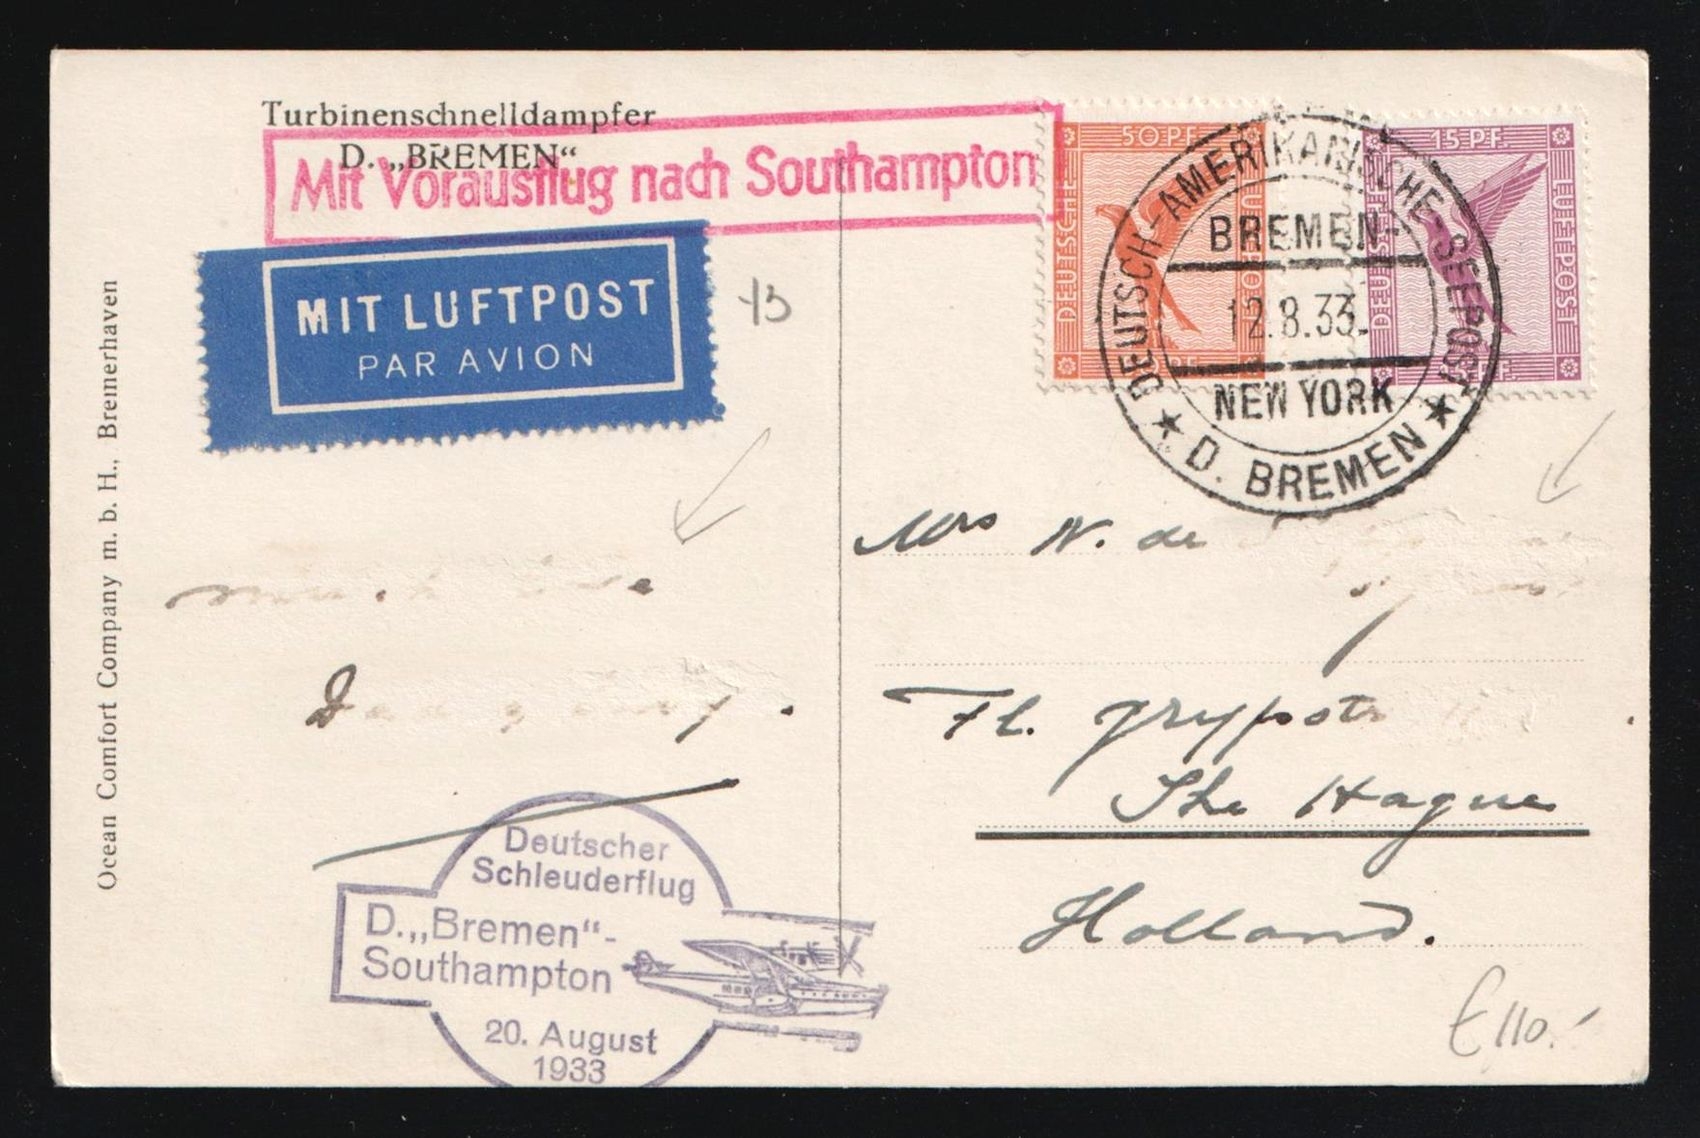 Turbinenschnelldampfer
D. „BREMEN“
Mit Vorausflug nach Southampton
MIT LUFTPOST
PAR AVION
13
Ocean Comfort Company m. b. H., Bremerhaven
50 PF.
DEUTSCHE
LUFTPOST
15 PF.
DEUTSCHE
LUFTPOST
15 PF.
DEUTSCH-AMERIKANISCHE SEEPOST
BREMEN-
12.8.33.
NEW YORK
★ D. BREMEN ★
Mrs N. de
Fl. Grypstr
The Hague
Holland.
Deutscher
Schleuderflug
D. „Bremen“-
Southampton
20. August
1933
€ 110.-